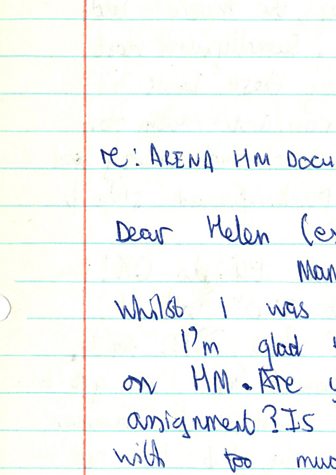 re: ARENA HM Docu
Dear Helen (ex
Man
Whilst I was
I'm glad
on HM. Are y
assignment? Is
with too muc